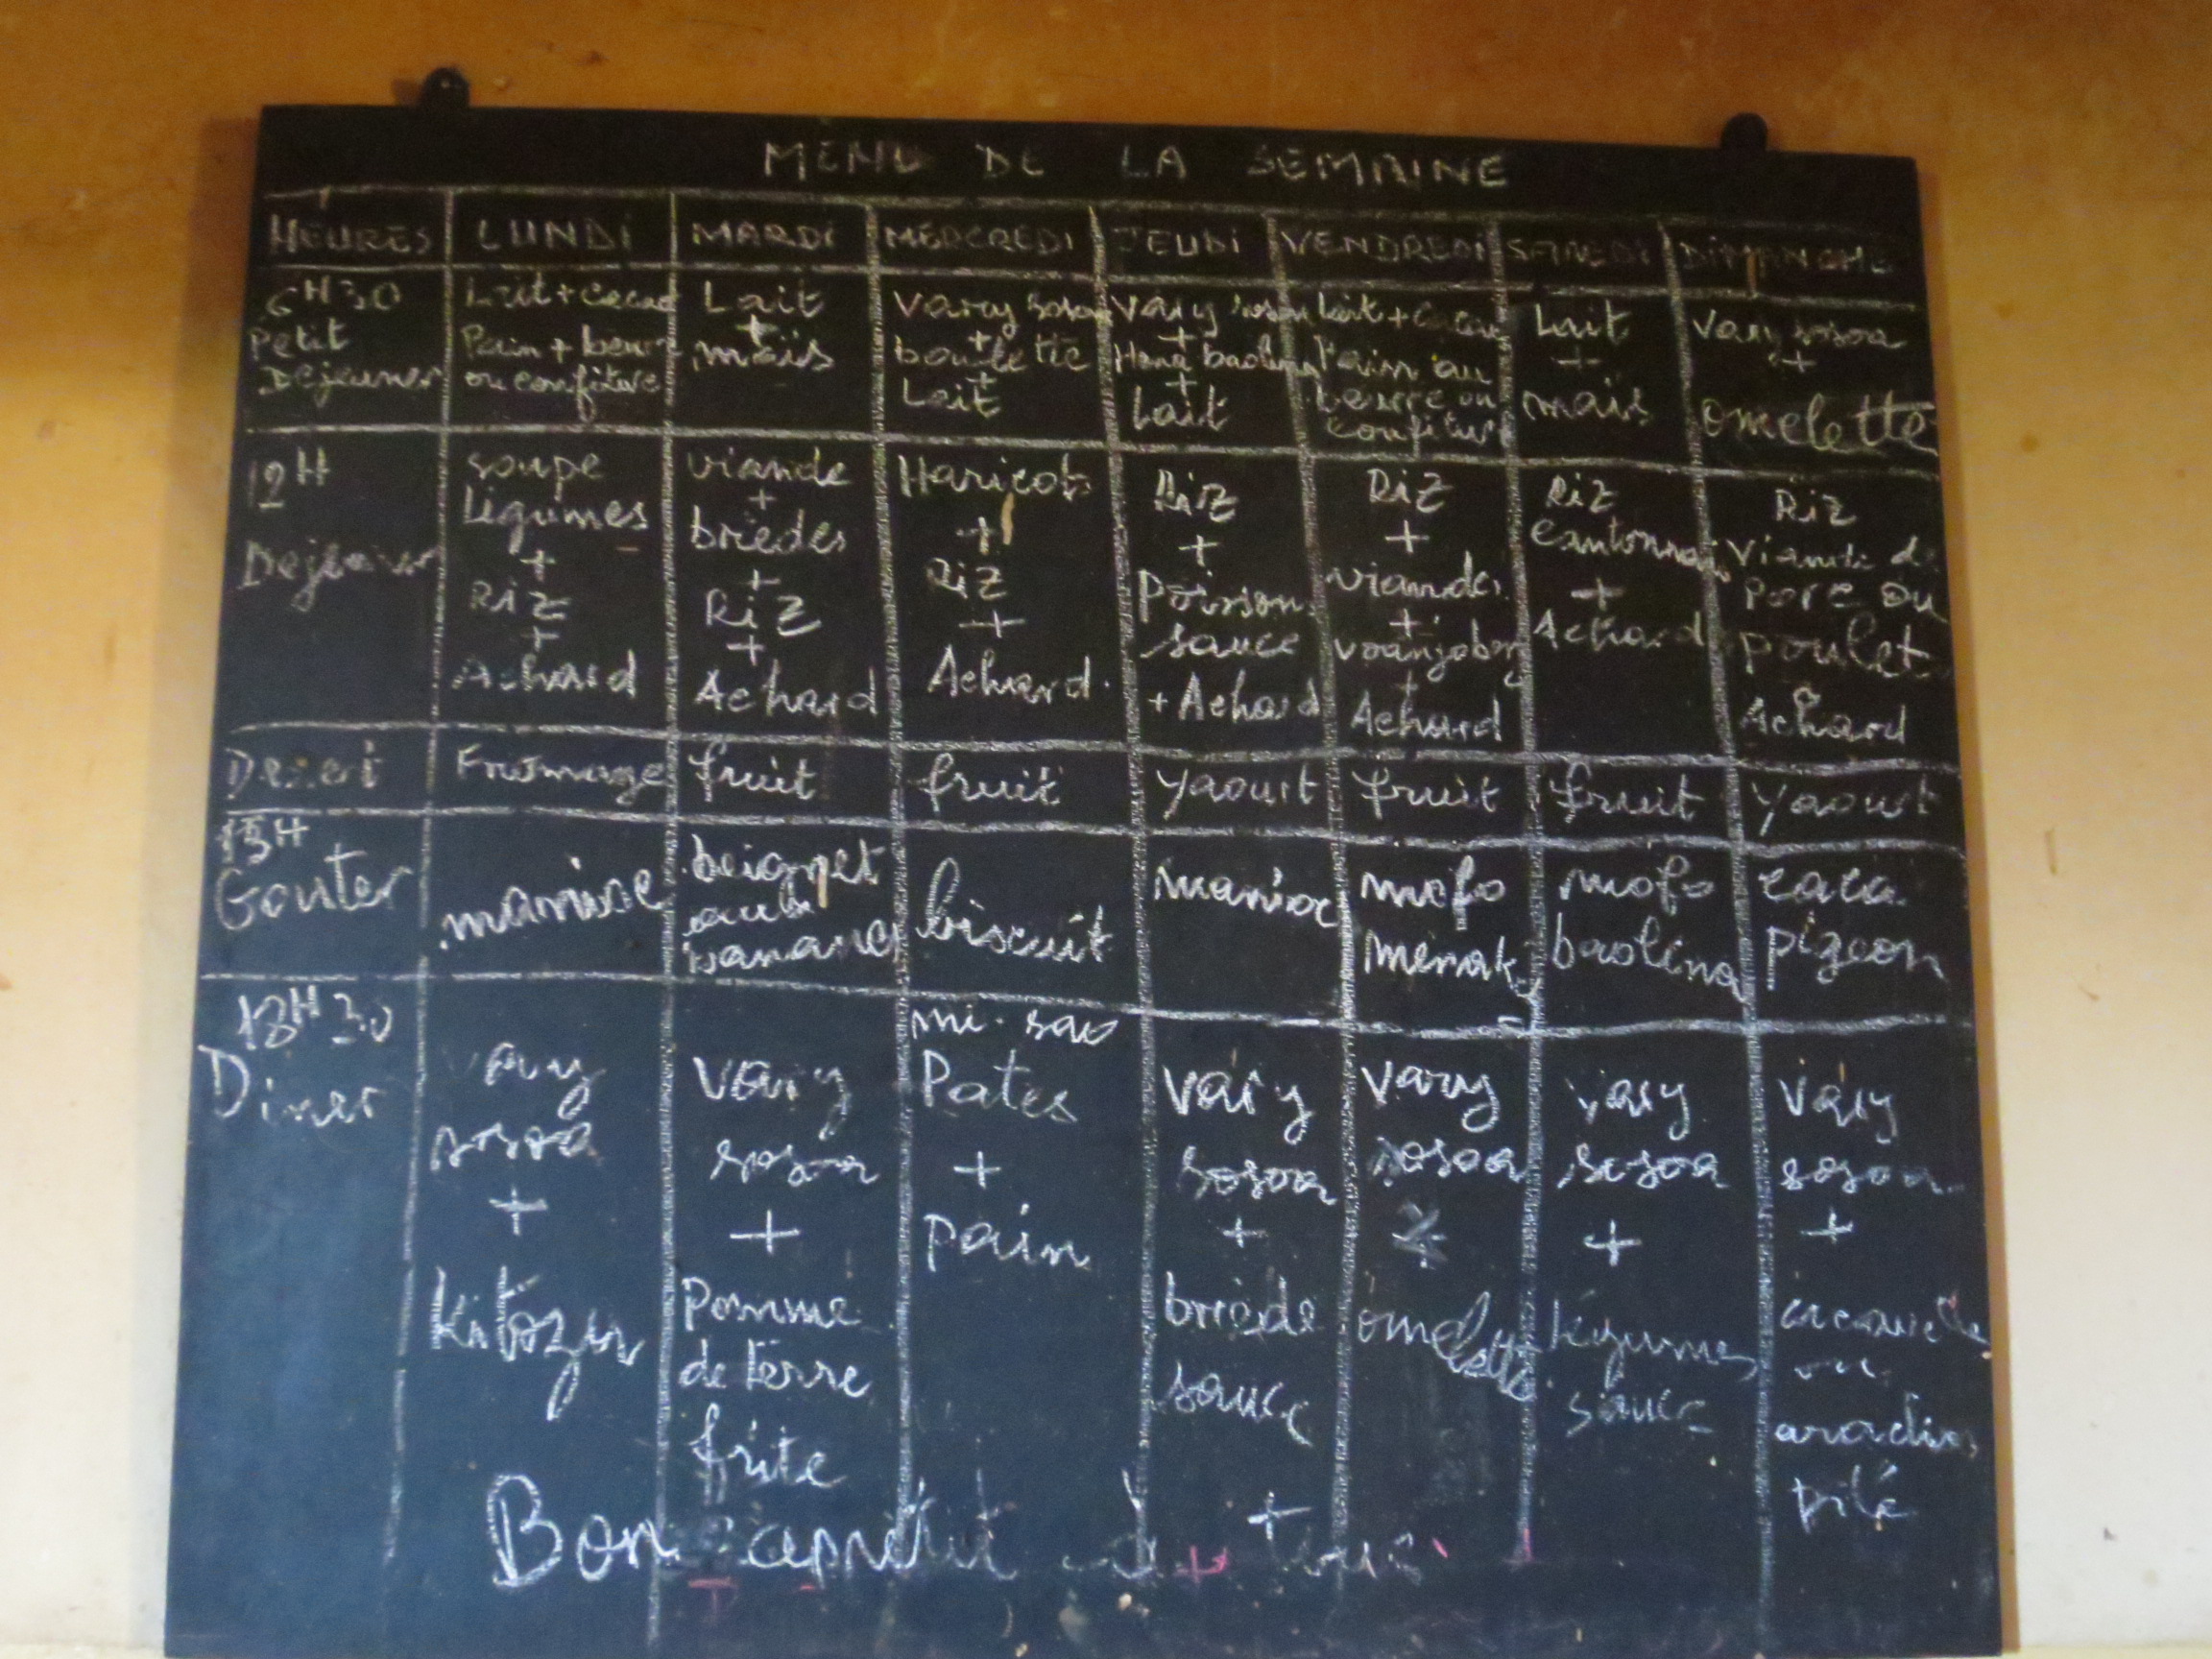 MENU DE LA SEMAINE
HEURES LUNDI MARDI MERCREDI JEUDI VENDREDI SAMEDI DIMANCHE
6H30
Petit
Dejeuner
Lait + cacao
Pain + beurre
ou confiture
Lait
+
maïs
Vary sosoa
+
boulette
+
Lait
Vary sosoa
+
baolina
+
Lait
Lait + cacao
Pain au
beurre ou
confiture
Lait
+
maïs
Vary sosoa
+
omelette
12H
Dejeuner
soupe
Légumes
+
RiZ
+
Achard
viande
+
brièdes
+
RiZ
+
Achard
Haricots
+
RiZ
+
Achard
RiZ
+
Poisson
sauce
+ Achard
RiZ
+
viande
+
voanjobory
+
Achard
RiZ
cantonnais
+
Achard
RiZ
Viande de
porc ou
poulet
Achard
Desert Fromage fruit fruit Yaourt fruit fruit Yaourt
15H
Gouter
beignet
banane
biscuit
manioc
mofo
menak
mofo
baolina
caca
pigeon
18H30
Diner
vary
sosoa
+
kitoza
vary
sosoa
+
Pomme
de terre
frite
mi-sao
Pates
+
pain
vary
sosoa
+
briède
sauce
vary
sosoa
+
omelette
vary
sosoa
+
légumes
sauce
vary
sosoa
+
ou
pilé
Bon appétit à tous